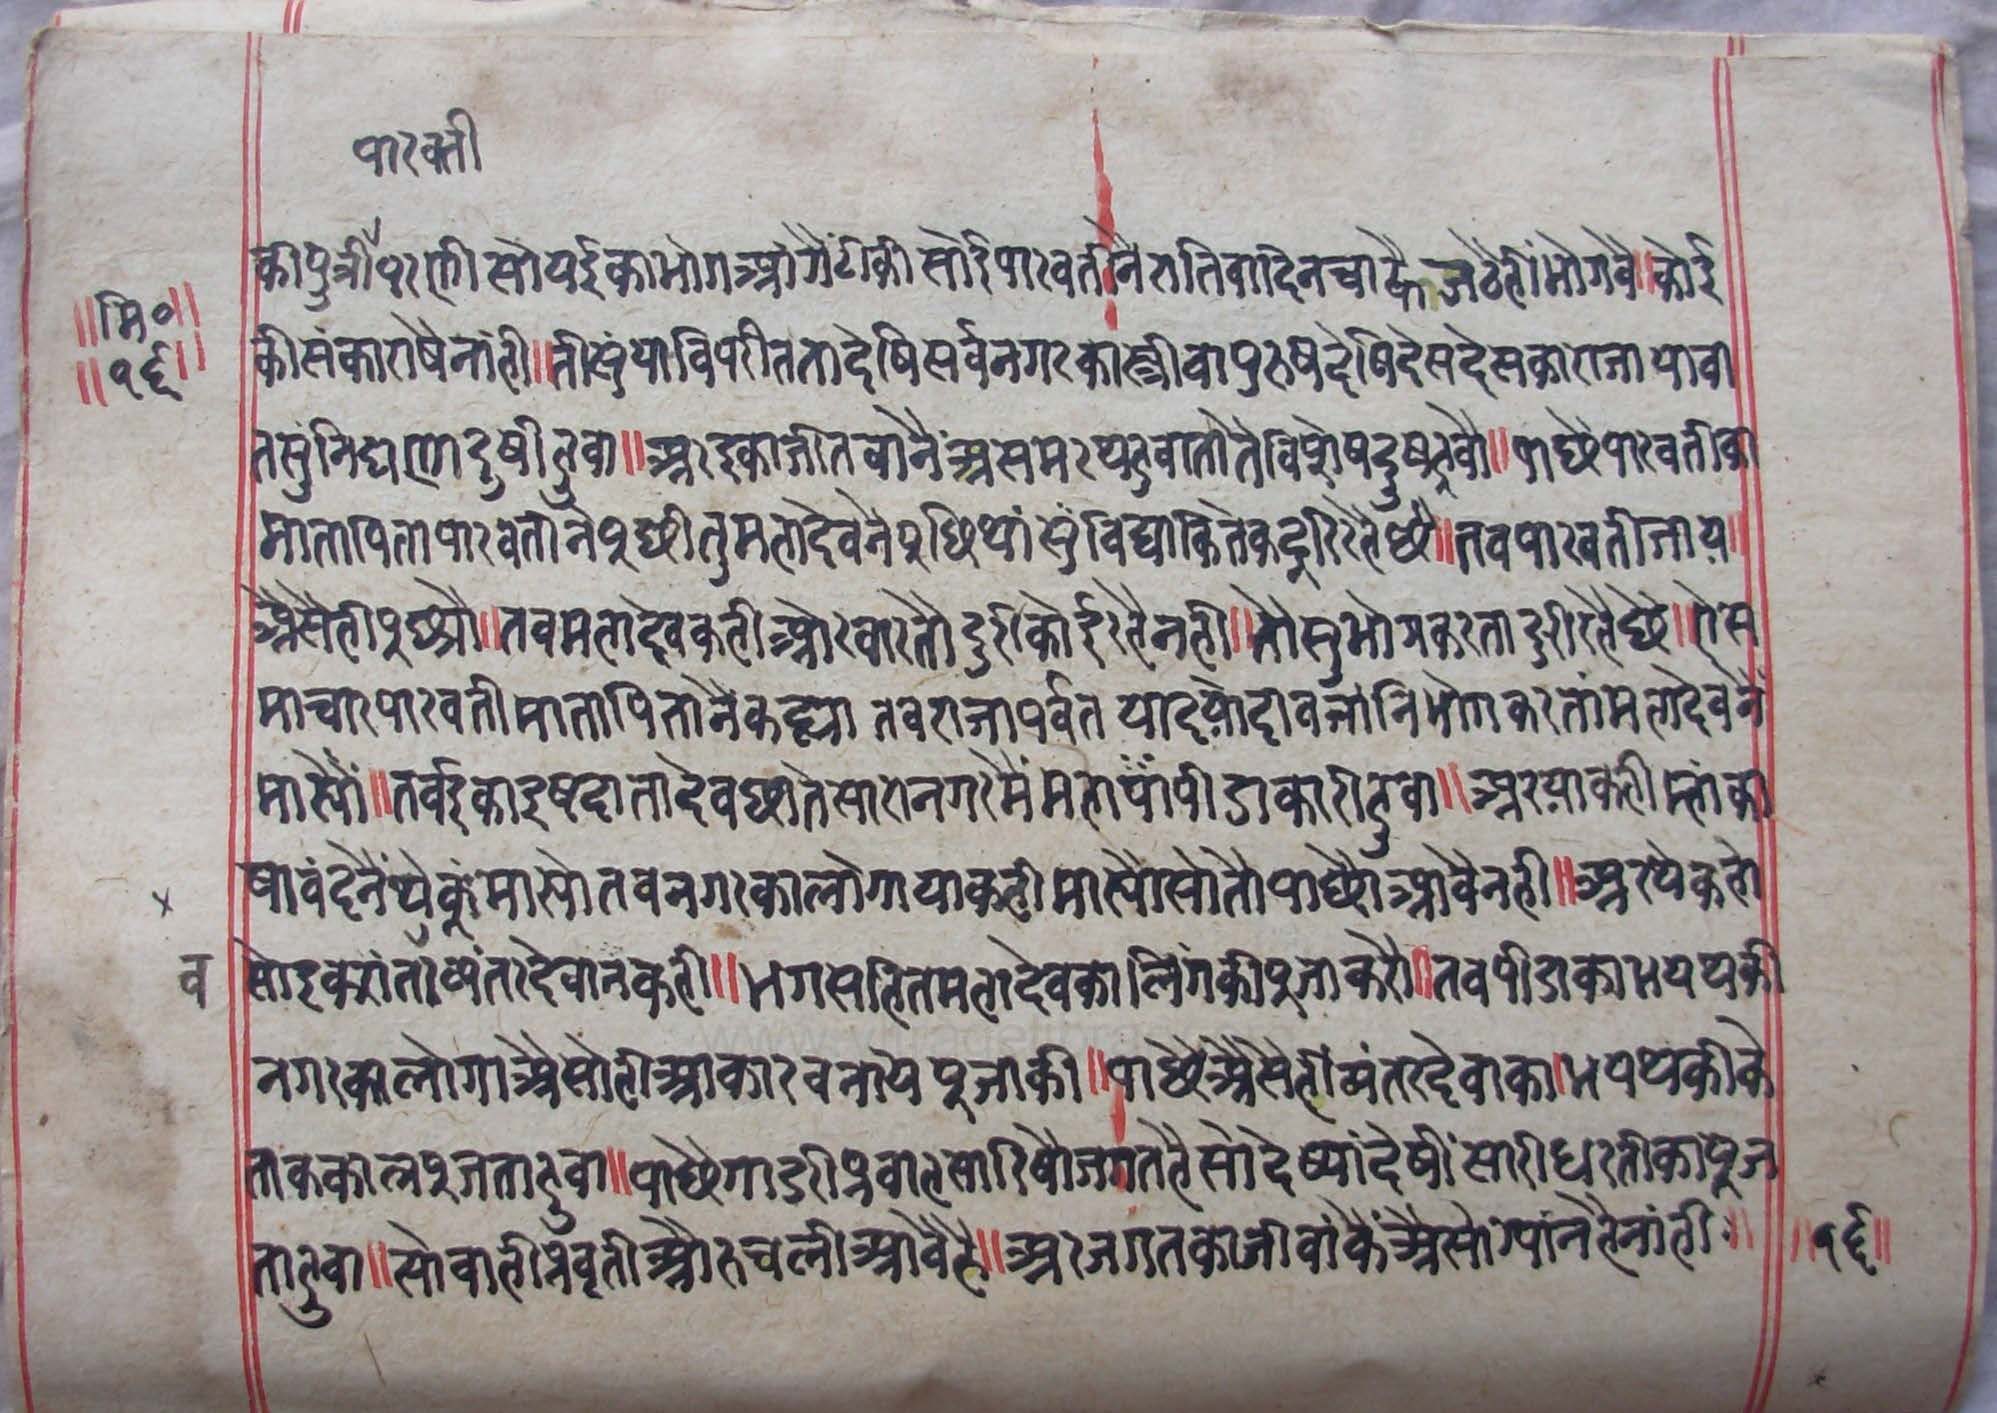 पारवती
की पुत्री परणी सो यई का भोग आंगैंटीकी सोई पारवतीनै राति वा दिन चाहै जठैही भोगवै॥ कोई
॥मि०॥
॥१६॥
की संका राषै नांही॥ तीसुं या विपरीतता देषि सर्व नगर का स्त्री वा पुरुष देषि देस देस का राजा या वा
त सुंनि घणा दुषी हुवा॥ अर इका जीतवानैं असमरथ हुवा तो तै विशेष दुष हुवो॥ पाछै पारवती का
माता पिता पारवतीनै पुछी तु महादेवनै पुछि थां सुं विद्या कितेक दुरि रहै छै॥ तब पारवती जाय॥
अैसै ही पुछ्यौ॥ तब महादेव कही और बार तौ दुरि कोई रहै नही॥ तौ सु भोग करता दुरी रहै छै॥ ऐ स
माचार पारवती माता पितानै कह्या तब राजा पर्वत या द्यो दाव जांनि भोग करतां महादेवनै
मास्यौं॥ तब ई का इष्टदाता देव छा ते सारा नगर मैं महा पीडाकारी हुवा॥ अर या कही म्हां का
षावंदनैं थे कूं मास्यो तब नगर का लोगा या कही मास्यौ सो तौ पाछौ आवै नही॥ अर थे कहो
×
व
सोइ करां तब व्यंतर देवान कही॥ भग सहित महादेव का लिंग की पुजा करौ॥ तब पीडा का भय थकी
नगर का लोगा अैसो ही आकार बनाय पुजा की॥ पाछै अैसै ही व्यंतर देवा का॥ भय थकी के
ताक काल पुजता हुवा॥ पाछै गाडरी प्रवाह सारिषौ जगत है सो देष्यां देषीं सारी धरती का पूज
ता हुवा॥ सो वाही प्रवृती औरु चली आवै है॥ अर जगत का जीवां कैं अैसो ग्यांन है नांही॥
॥१६॥